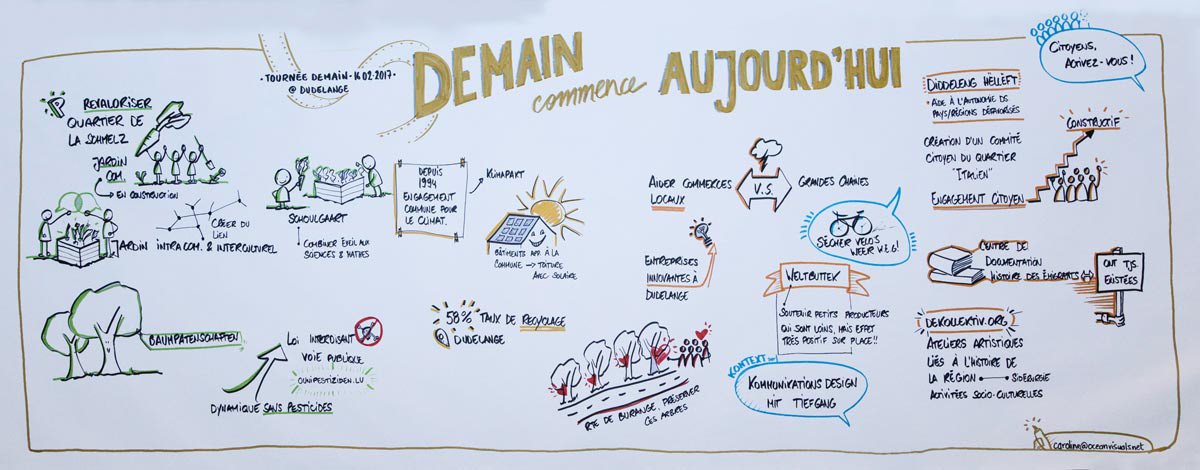 DEMAIN
commence
AUJOURD'HUI
· TOURNÉE DEMAIN · 16.02.2017 ·
@ DUDELANGE
REVALORISER
QUARTIER DE
LA SCHMELZ
JARDIN
COM.
EN CONSTRUCTION
CRÉER DU
LIEN
JARDIN INTRACOM. & INTERCULTUREL
SCHOULGAART
COMBINER ÉVEIL AUX
SCIENCES & MATHES
BAUMPATENSCHAFTEN
LOI INTERDISANT
VOIE PUBLIQUE
OUNIPESTIZIDEN.LU
DYNAMIQUE SANS PESTICIDES
DEPUIS
1994
ENGAGEMENT
COMMUNE POUR
LE CLIMAT.
KLIMAPAKT
BÂTIMENTS APP. À LA
COMMUNE → TOITURE
AVEC SOLAIRE
58% TAUX DE RECYCLAGE
@ DUDELANGE
RTE DE BURANGE, PRÉSERVER
CES ARBRES
AIDER COMMERCES
LOCAUX
V.S.
GRANDES CHAINES
ENTREPRISES
INNOVANTES À
DUDELANGE
SÉCHER VËLOS
WEER W.E.G!
WELTBUTTEK
SOUTENIR PETITS PRODUCTEURS
QUI SONT LOINS, MAIS EFFET
TRÈS POSITIF SUR PLACE!!
KONTEXT
KOMMUNIKATIONS DESIGN
MIT TIEFGANG
CITOYENS,
ACTIVEZ-VOUS!
DIDDELENG HËLLEFT
· AIDE À L'AUTONOMIE DS
PAYS/RÉGIONS DÉFAVORISÉS
CRÉATION D'UN COMMITÉ
CITOYEN DU QUARTIER
"ITALIEN"
ENGAGEMENT CITOYEN
CONSTRUCTIF
CENTRE DE
DOCUMENTATION
HISTOIRE DES ÉMIGRANTS
ONT TJS
EXISTÉES
DEKOLLEKTIV.ORG
ATELIERS ARTISTIQUES
LIÉS À L'HISTOIRE DE
LA RÉGION SIDÉRURGIE
ACTIVITÉES SOCIO-CULTURELLES
caroline@oceanvisuals.net